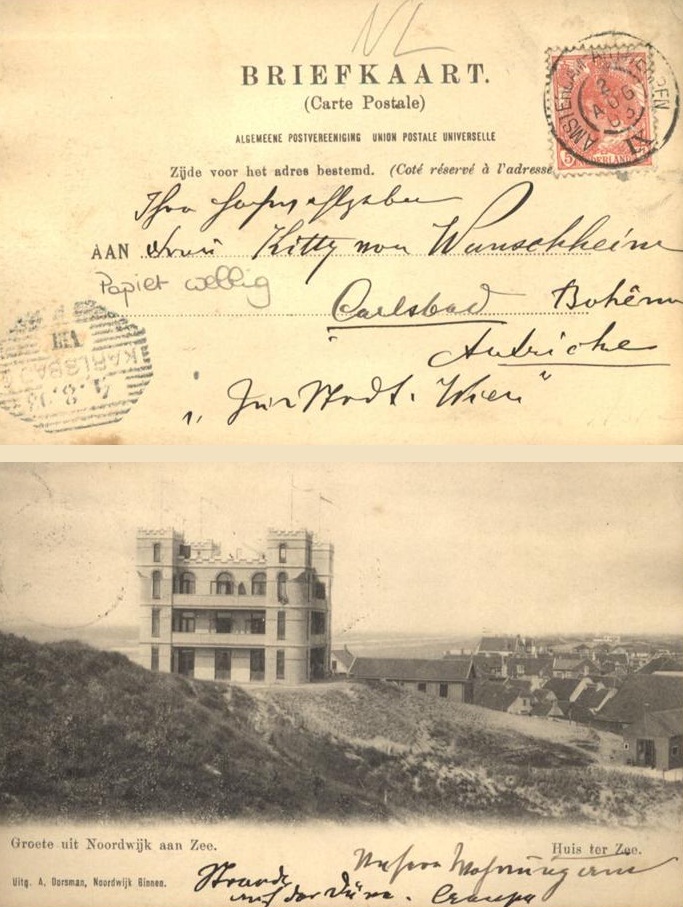 NL
BRIEFKAART.
(Carte Postale)
ALGEMEENE POSTVEREENIGING UNION POSTALE UNIVERSELLE
Zijde voor het adres bestemd. (Coté réservé à l'adresse
NEDERLAND
AMSTERDAM-ANTWERPEN
2 AUG
IX
AAN Frau Kitty von Wunschheim
Papier wellig
Carlsbad Bohême
Autriche
KARLSBAD
"Zur Stadt Wien"
Groete uit Noordwijk aan Zee.
Huis ter Zee.
Uitg. A. Dorsman, Noordwijk Binnen.
Unsere Wohnung am
Strande
auf der Düne.